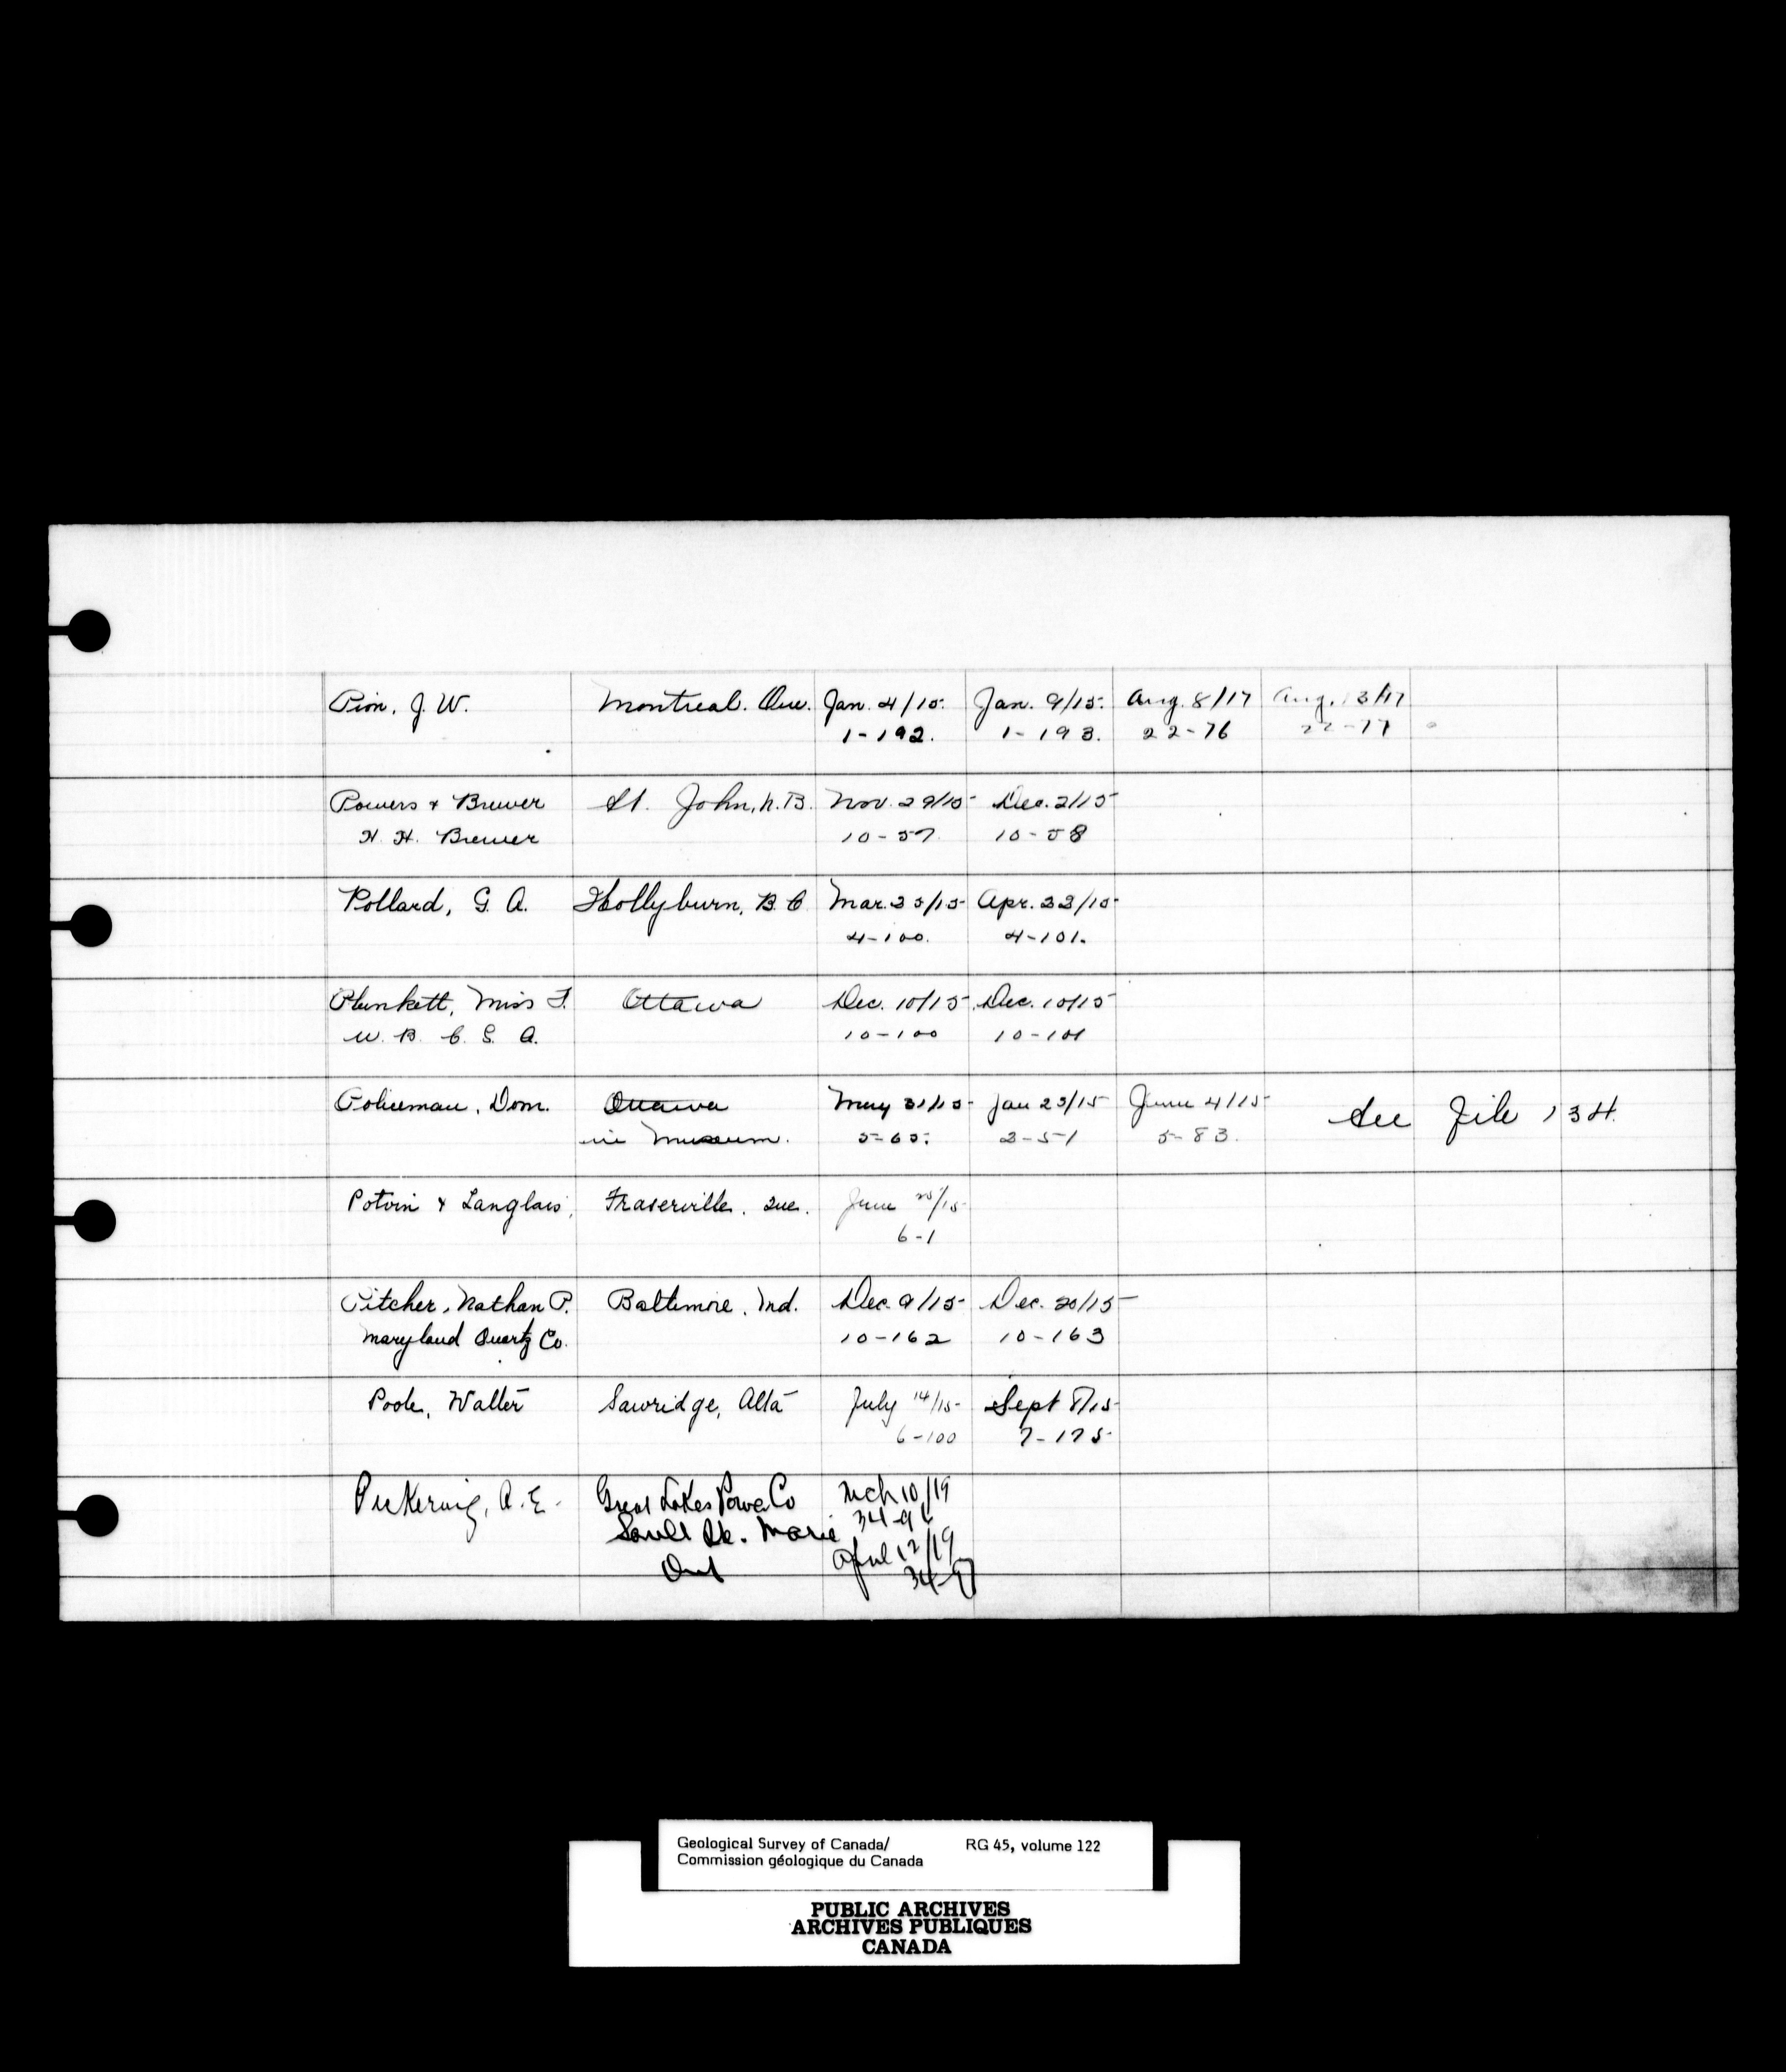 Pion, J. W. Montreal. Que. Jan. 4/15. Jan. 9/15. Aug. 8/17 Aug. 13/17
1-192. 1-193. 22-76 22-77
Powers & Brewer St. John, N.B. Nov. 29/15 Dec. 2/15
H. H. Brewer 10-57 10-58
Pollard, G. A. Hollyburn, B.C Mar. 25/15 Apr. 22/15
4-100. 4-101.
Plunkett, Miss F. Ottawa Dec. 10/15 Dec. 10/15
W. B. C. G. A. 10-100 10-101
Policeman, Dom. Ottawa May 31/15 Jan 23/15 June 4/15 See File 134.
in Museum. 5-65. 2-51 5-83.
Potvin & Langlais, Fraserville, Que. June 25/15
6-1
Pitcher, Nathan P. Baltimore, Md. Dec. 9/15 Dec. 20/15
Maryland Quartz Co. 10-162 10-163
Poole, Walter Sawridge, Alta July 14/15 Sept 8/15
6-100 7-175
Pickering, A. E. Great Lakes Power Co Mch 10/19
Sault Ste. Marie 34-96
Ont April 12/19
34-97
Geological Survey of Canada/ RG 45, volume 122
Commission géologique du Canada
PUBLIC ARCHIVES
ARCHIVES PUBLIQUES
CANADA